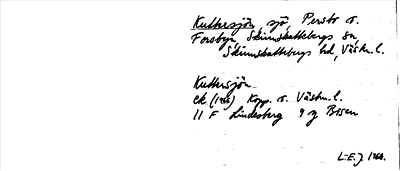 Kuttersjön, sjö, Persbo o.
Forsbyn Skinnskattebergs sn
Skinnskattebergs hd, Västm. l.
Kuttersjön
ek (1966) Kopp. o. Västm. l.
11 F Lindesberg 9 g Bosen
L-E. J 1966.